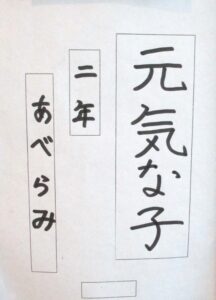 元気な子
二年
あべらみ